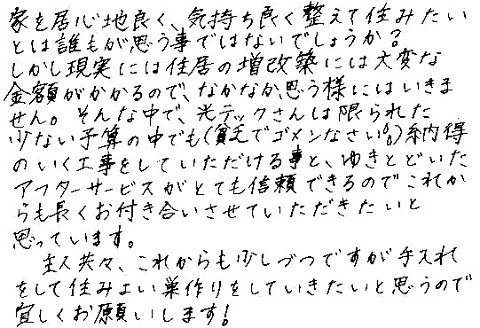 家を居心地良く、気持ち良く整えて住みたい
とは誰もが思う事ではないでしょうか?
しかし現実には住居の増改築には大変な
金額がかかるので、なかなか思う様にはいきま
せん。そんな中で、光テックさんは限られた
少ない予算の中でも(貧乏でゴメンなさい。。)納得
のいく工事をしていただける事と、ゆきとどいた
アフターサービスがとても信頼できるのでこれか
らも長くお付き合いさせていただきたいと
思っています。
主人共々、これからも少しづつですが手入れ
をして住みよい巣作りをしていきたいと思うので
宜しくお願いします!